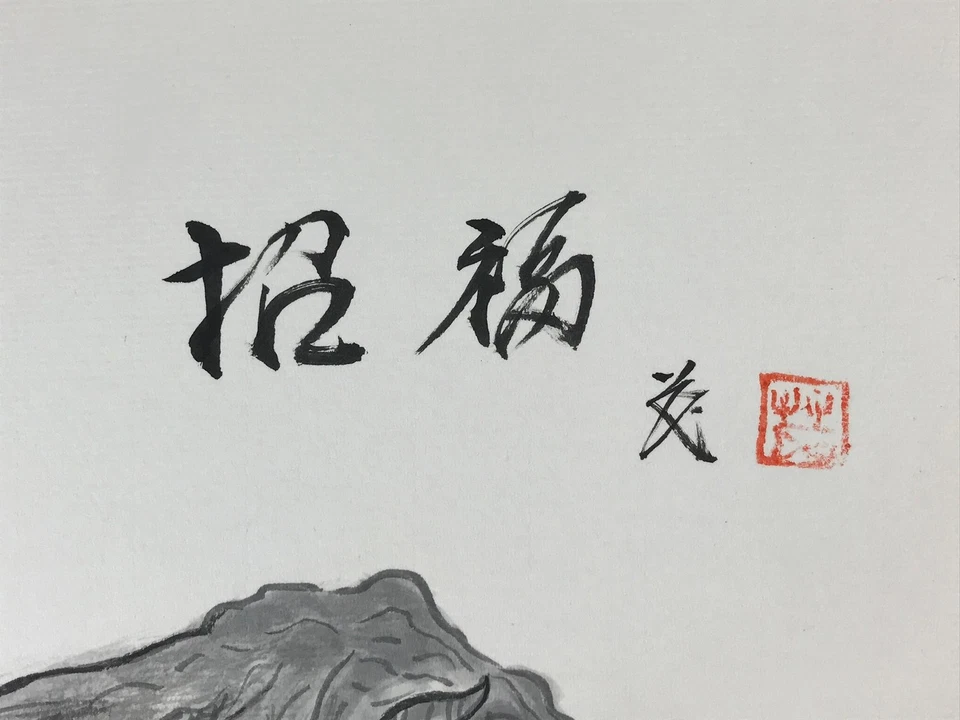 招福
茂